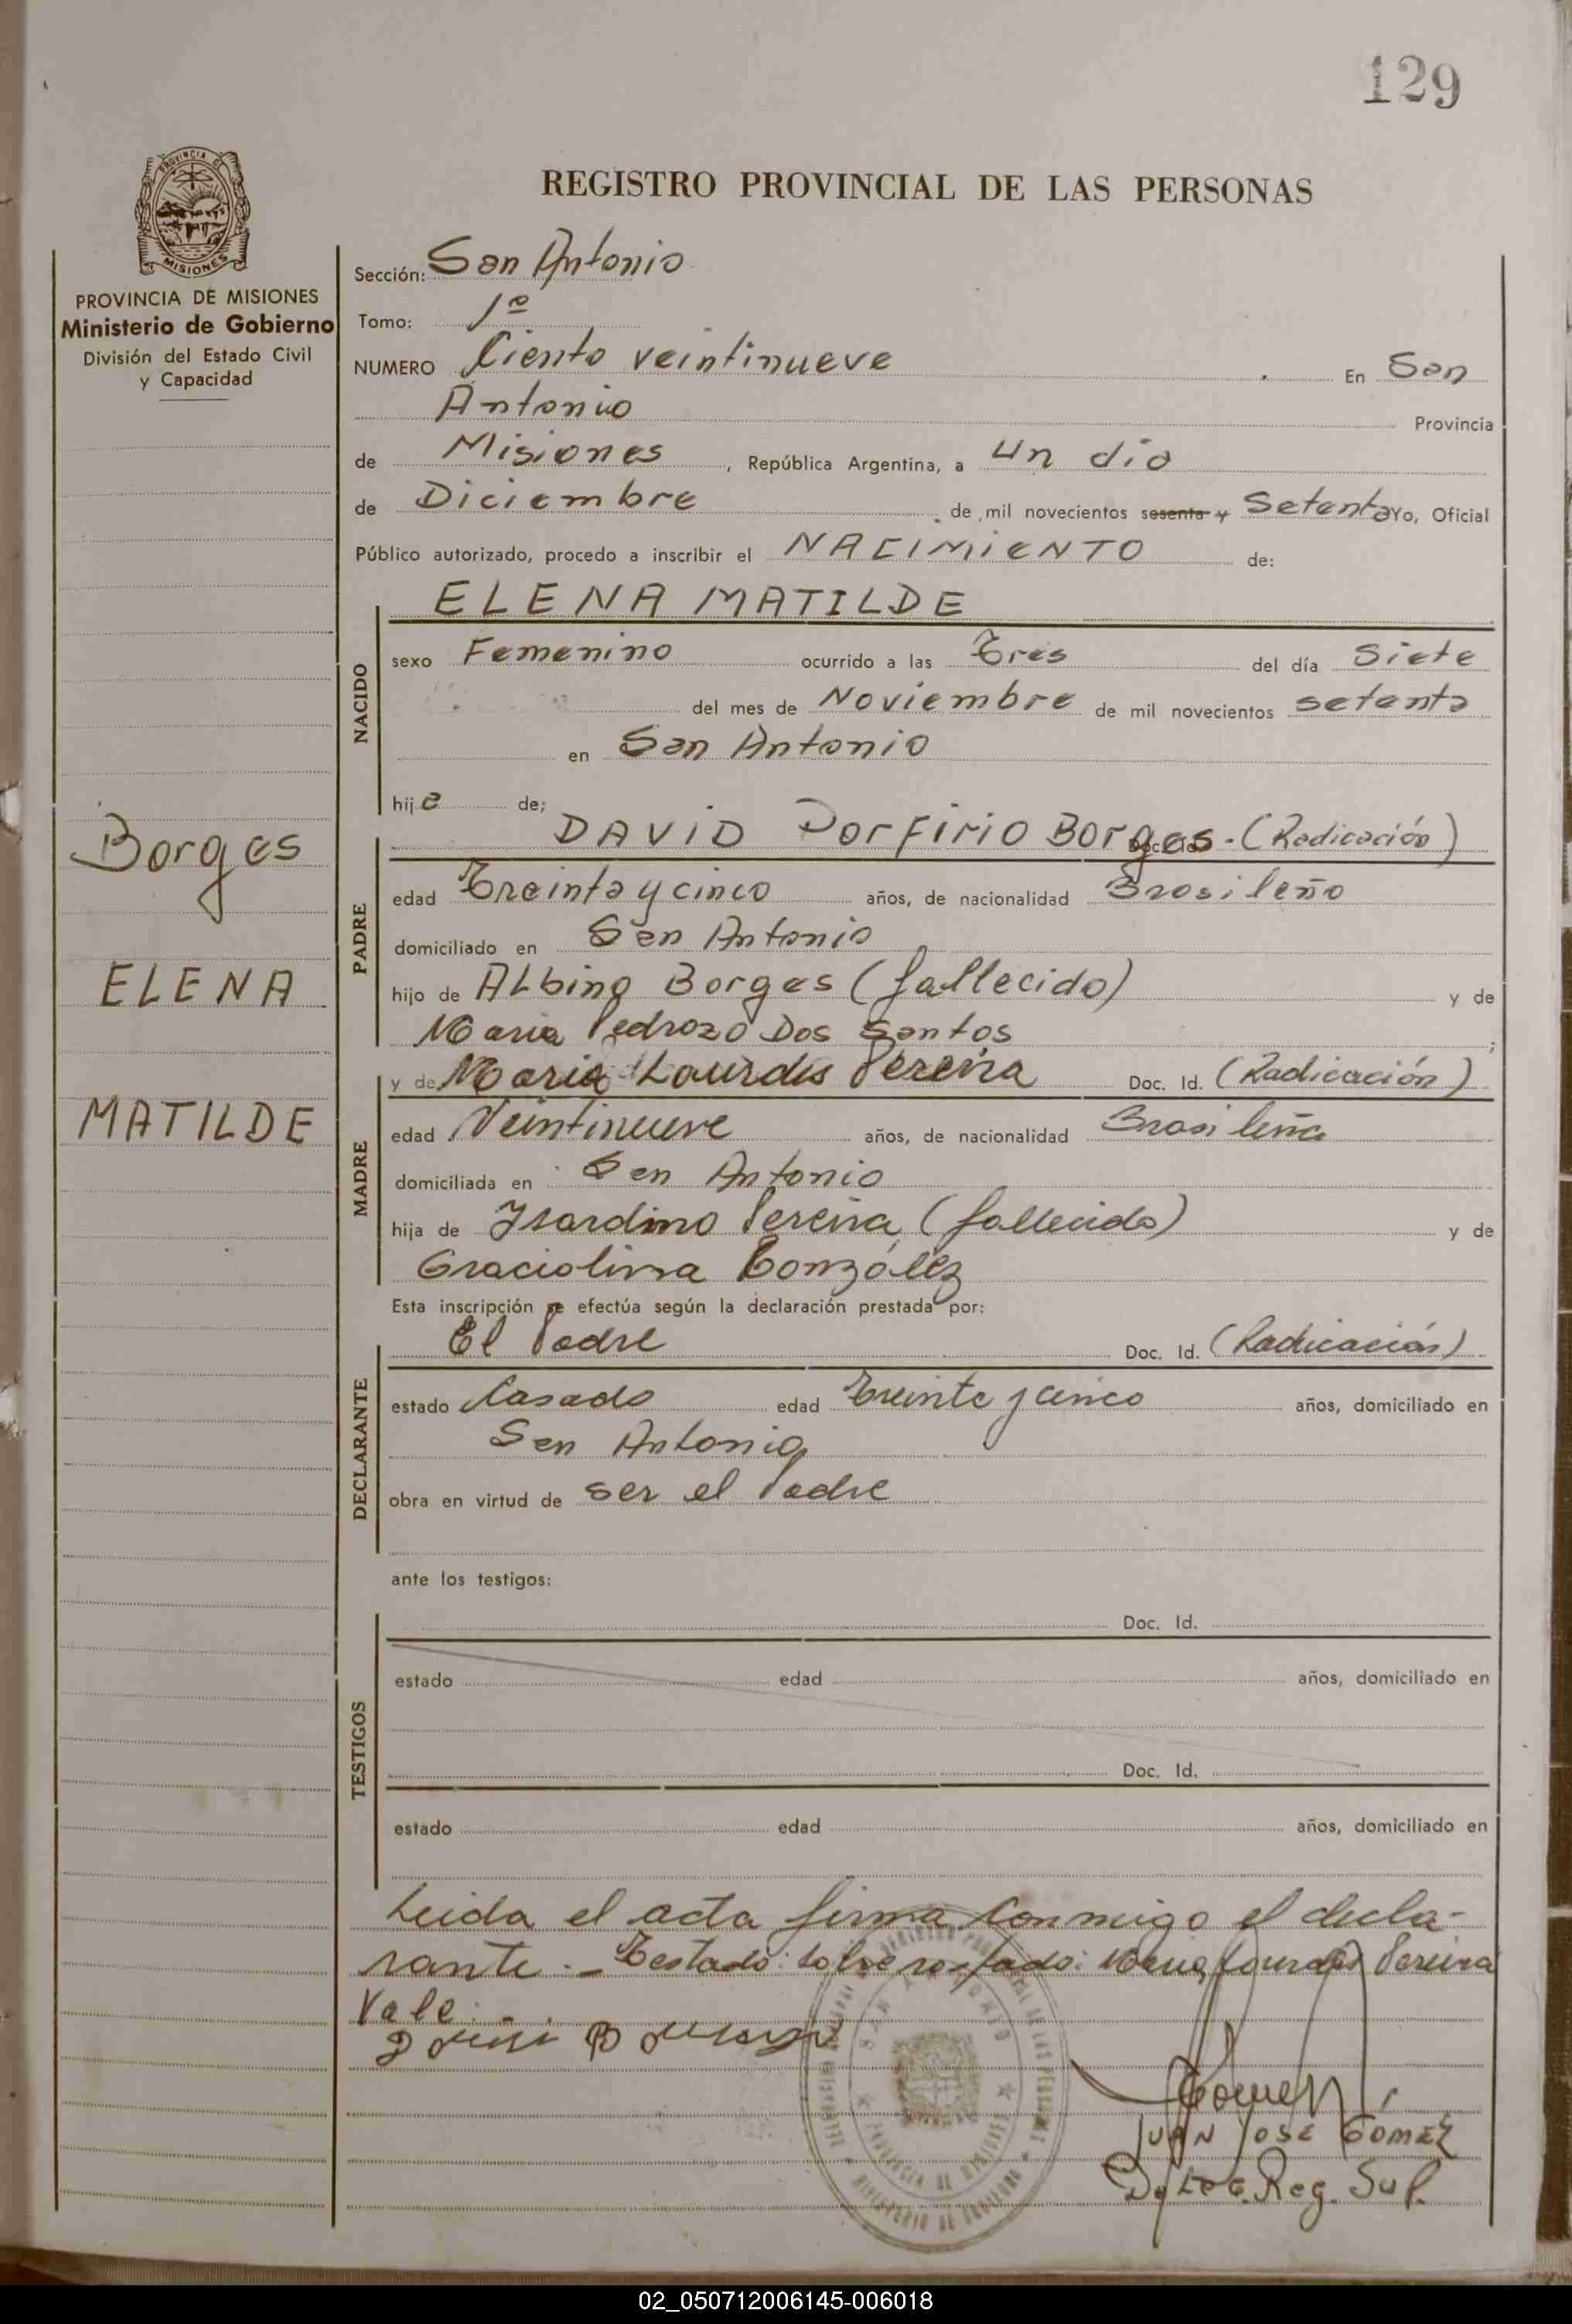 129
PROVINCIA DE MISIONES
PROVINCIA DE MISIONES
Ministerio de Gobierno
División del Estado Civil
y Capacidad
Borges
ELENA
MATILDE
REGISTRO PROVINCIAL DE LAS PERSONAS
Sección: San Antonio
Tomo: 1º
NUMERO Ciento veintinueve . En San
Antonio Provincia
de Misiones , República Argentina, a un día
de Diciembre de mil novecientos sesenta y Setenta Yo, Oficial
Público autorizado, procedo a inscribir el NACIMIENTO de:
ELENA MATILDE
NACIDO
sexo Femenino ocurrido a las Tres del día Siete
del mes de Noviembre de mil novecientos setenta
en San Antonio
hija de;
DAVID Porfirio Borges - (Radicación)
PADRE
edad Treinta y cinco años, de nacionalidad Brasileño
domiciliado en San Antonio
hijo de Albino Borges (fallecido) y de
Maria Pedrozo Dos Santos ;
y de Maria Lourdes Pereira Doc. Id. (Radicación)
MADRE
edad Veintinueve años, de nacionalidad Brasileña
domiciliada en San Antonio
hija de Isardino Pereira (fallecido) y de
Graciolina Gonzáles
Esta inscripción se efectúa según la declaración prestada por:
El Padre Doc. Id. (Radicación)
DECLARANTE
estado Casado edad Treinta y cinco años, domiciliado en
San Antonio
obra en virtud de ser el Padre
ante los testigos:
Doc. Id.
TESTIGOS
estado edad años, domiciliado en
Doc. Id.
estado edad años, domiciliado en
Leida el acta firma conmigo el decla-
rante.- Testado: sobre rostado: Maria Lourdes Pereira
Vale.
Gomez
JUAN JOSE GÓMEZ
Reg. Sup.
SAN ANTONIO
PROVINCIA DE MISIONES
MINISTERIO DE GOBIERNO
02_050712006145-006018